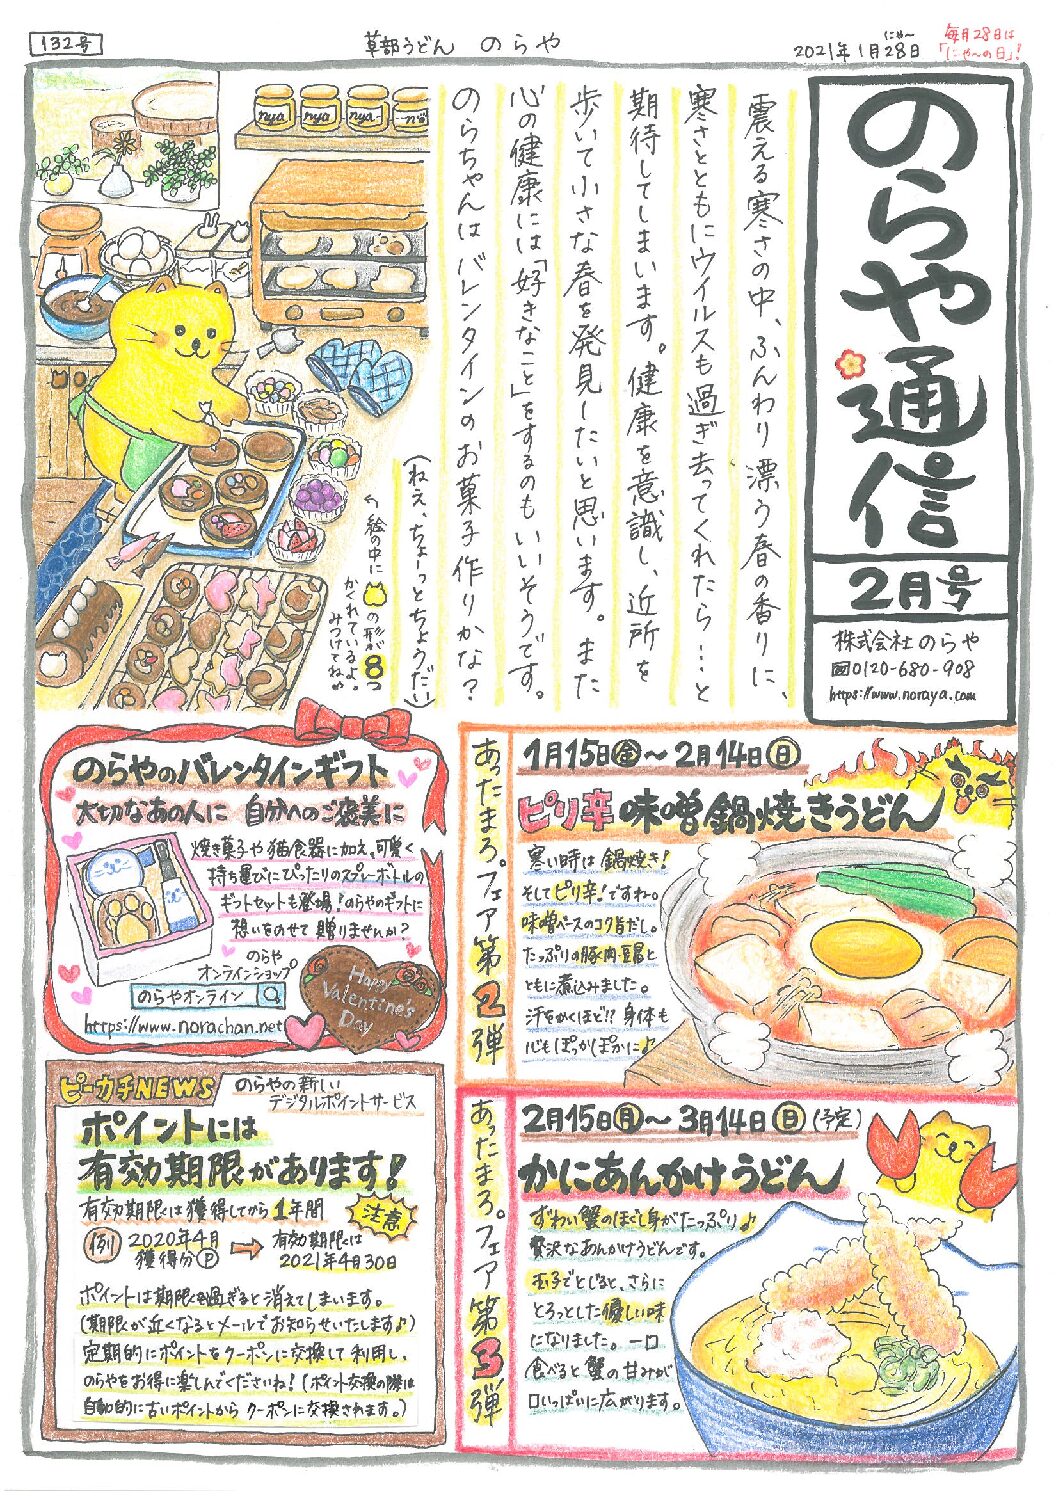 132号
草部うどん のらや
にゃ〜
2021年1月28日
毎月28日は
「にゃ〜の日」!
のらや通信
2月号
株式会社 のらや
0120-680-908
https://www.noraya.com
震える寒さの中、ふんわり漂う春の香りに、
寒さとともにウイルスも過ぎ去ってくれたら…と
期待してしまいます。健康を意識し、近所を
歩いて小さな春を発見したいと思います。また
心の健康には「好きなこと」をするのもいいそうです。
のらちゃんはバレンタインのお菓子作りかな?
(ねえ、ちょーっとちょうだい)
絵の中に の形が8つ
かくれているよ。
みつけてね♪
nya
nya
nya
のらやのバレンタインギフト
大切なあの人に 自分へのご褒美に
焼き菓子や猫食器に加え、可愛く
持ち運びにぴったりのスプレーボトルの
ギフトセットも登場!のらやのギフトに
想いをのせて贈りませんか?
のらや
オンラインショップ
のらやオンライン
https://www.norachan.net
Happy
Valentine's
Day
ピーカチNEWS
のらやの新しい
デジタルポイントサービス
ポイントには
有効期限があります!
有効期限は獲得してから1年間
注意
例 2020年4月
獲得分P
有効期限は
2021年4月30日
ポイントは期限を過ぎると消えてしまいます。
(期限が近くなるとメールでお知らせいたします♪)
定期的にポイントをクーポンに交換して利用し、
のらやをお得に楽しんでくださいね!(ポイント交換の際は
自動的に古いポイントからクーポンに交換されます。)
あったまろ。フェア第2弾
1月15日金〜2月14日日
ピリ辛味噌鍋焼きうどん
寒い時は鍋焼き!
そしてピリ辛!ですね。
味噌ベースのコク旨だし。
たっぷりの豚肉・豆腐と
ともに煮込みました。
汗をかくほど!?身体も
心もぽっかぽかに♪
あったまろ。フェア第3弾
2月15日月〜3月14日日(予定)
かにあんかけうどん
ずわい蟹のほぐし身がたっぷり♪
贅沢なあんかけうどんです。
玉子でとじると、さらに
とろっとした優しい味
になりました。一口
食べると蟹の甘みが
口いっぱいに広がります。